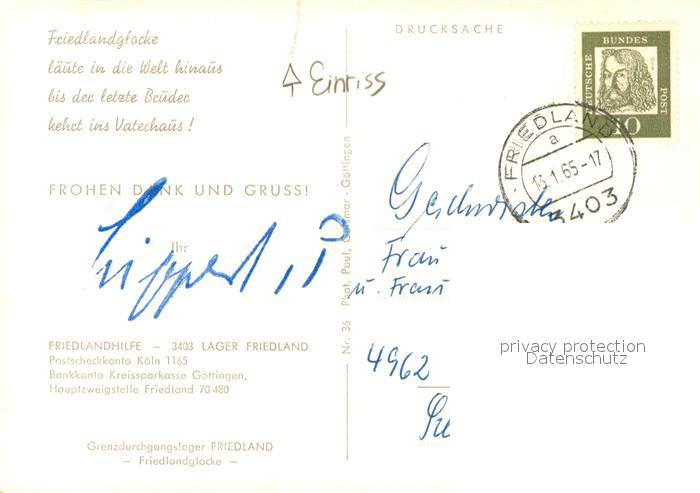 Friedlandglocke
läute in die Welt hinaus
bis der letzte Bruder
kehrt ins Vaterhaus!
FROHEN DANK UND GRUSS!
Ihr
FRIEDLANDHILFE – 3403 LAGER FRIEDLAND
Postscheckkonto Köln 1165
Bankkonto Kreissparkasse Göttingen,
Hauptzweigstelle Friedland 70 480
Grenzdurchgangslager FRIEDLAND
– Friedlandglocke –
Einriss
Nr. 36 Phot. Paul, Göttingen
DRUCKSACHE
DEUTSCHE BUNDES POST
10
FRIEDLAND
a
13.1.65-17
3403
Geschwister
Frau
u. Frau
4962
privacy protection
Datenschutz